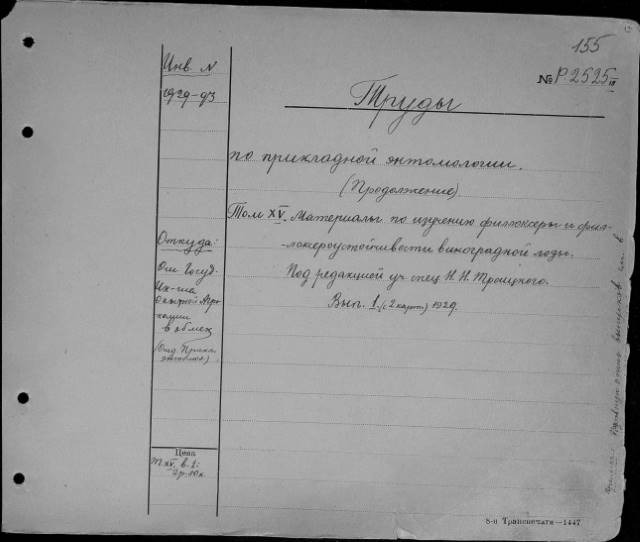 155
№ Р.2525 III
Инв. N
1929-93
Труды
по прикладной энтомологии.
(Продолжение)
Том XV. Материалы по изучению филоксеры и фил-
-локсероустойчивости виноградной лозы.
Под редакцией уч. спец. Н. Н. Троицкого.
Вып. 1. (с 2 карт.) 1929.
Откуда:
От Госуд.
Ин-та
опытной Агро-
номии
в обмен
(Отд. Прикл.
энтомол.)
Цена
Т XV. в. 1:
2 р. 10 к.
8-я Транспечати—1447